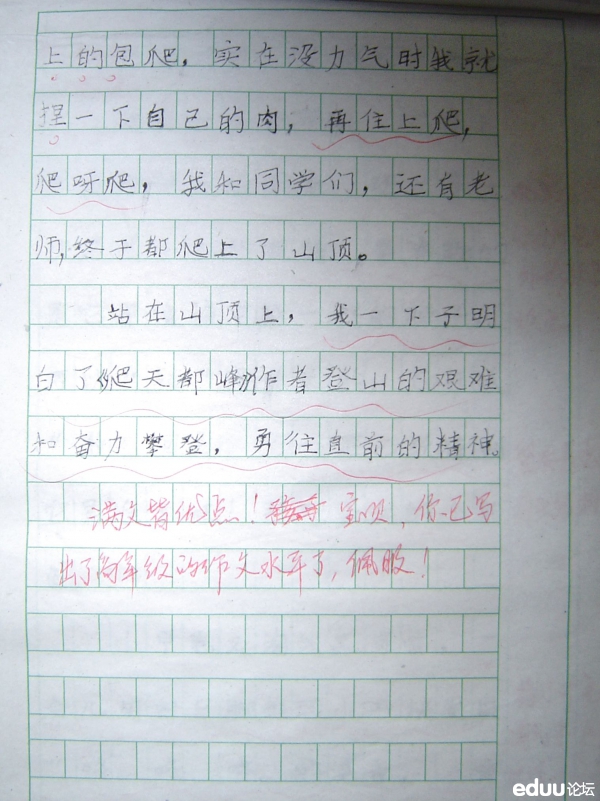 上的包爬，实在没力气时我就
捏一下自己的肉，再住上爬，
爬呀爬，我和同学们，还有老
师，终于都爬上了山顶。
站在山顶上，我一下子明
白了《爬天都峰》作者登山的艰难
和奋力攀登，勇往直前的精神。
满文皆优点！宝贝，你已写
出了高年级的作文水平了，佩服！
eduu论坛